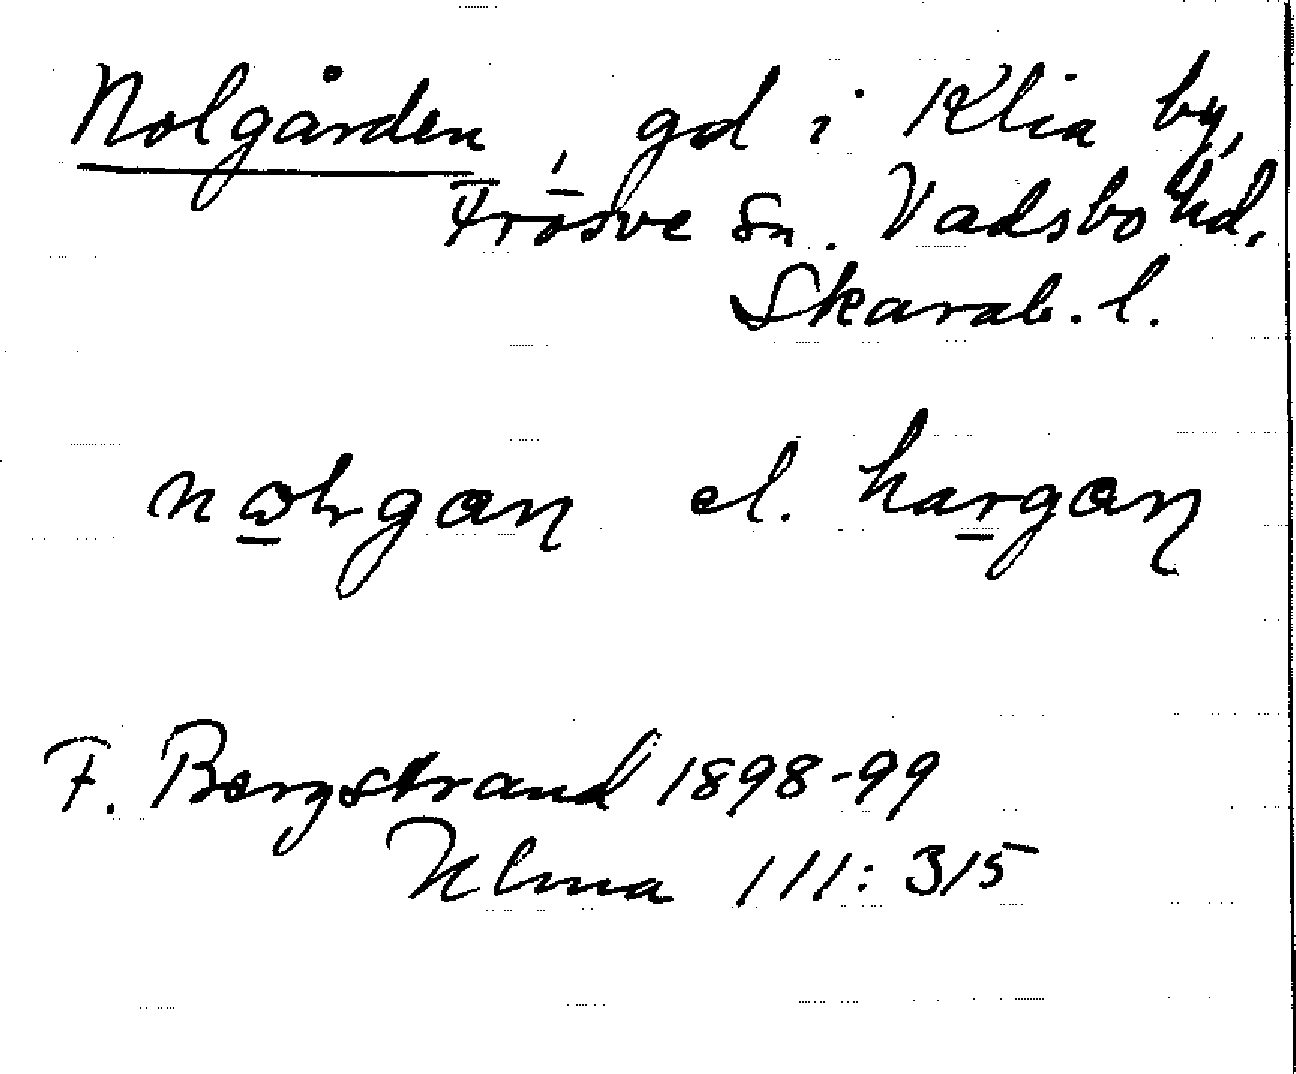 Nolgården, gd i Klia by,
Frösve sn. Vadsbo hd.
Skarab. l.
el. hargan
F. Bergstrand 1898-99
Ulma 111: 315